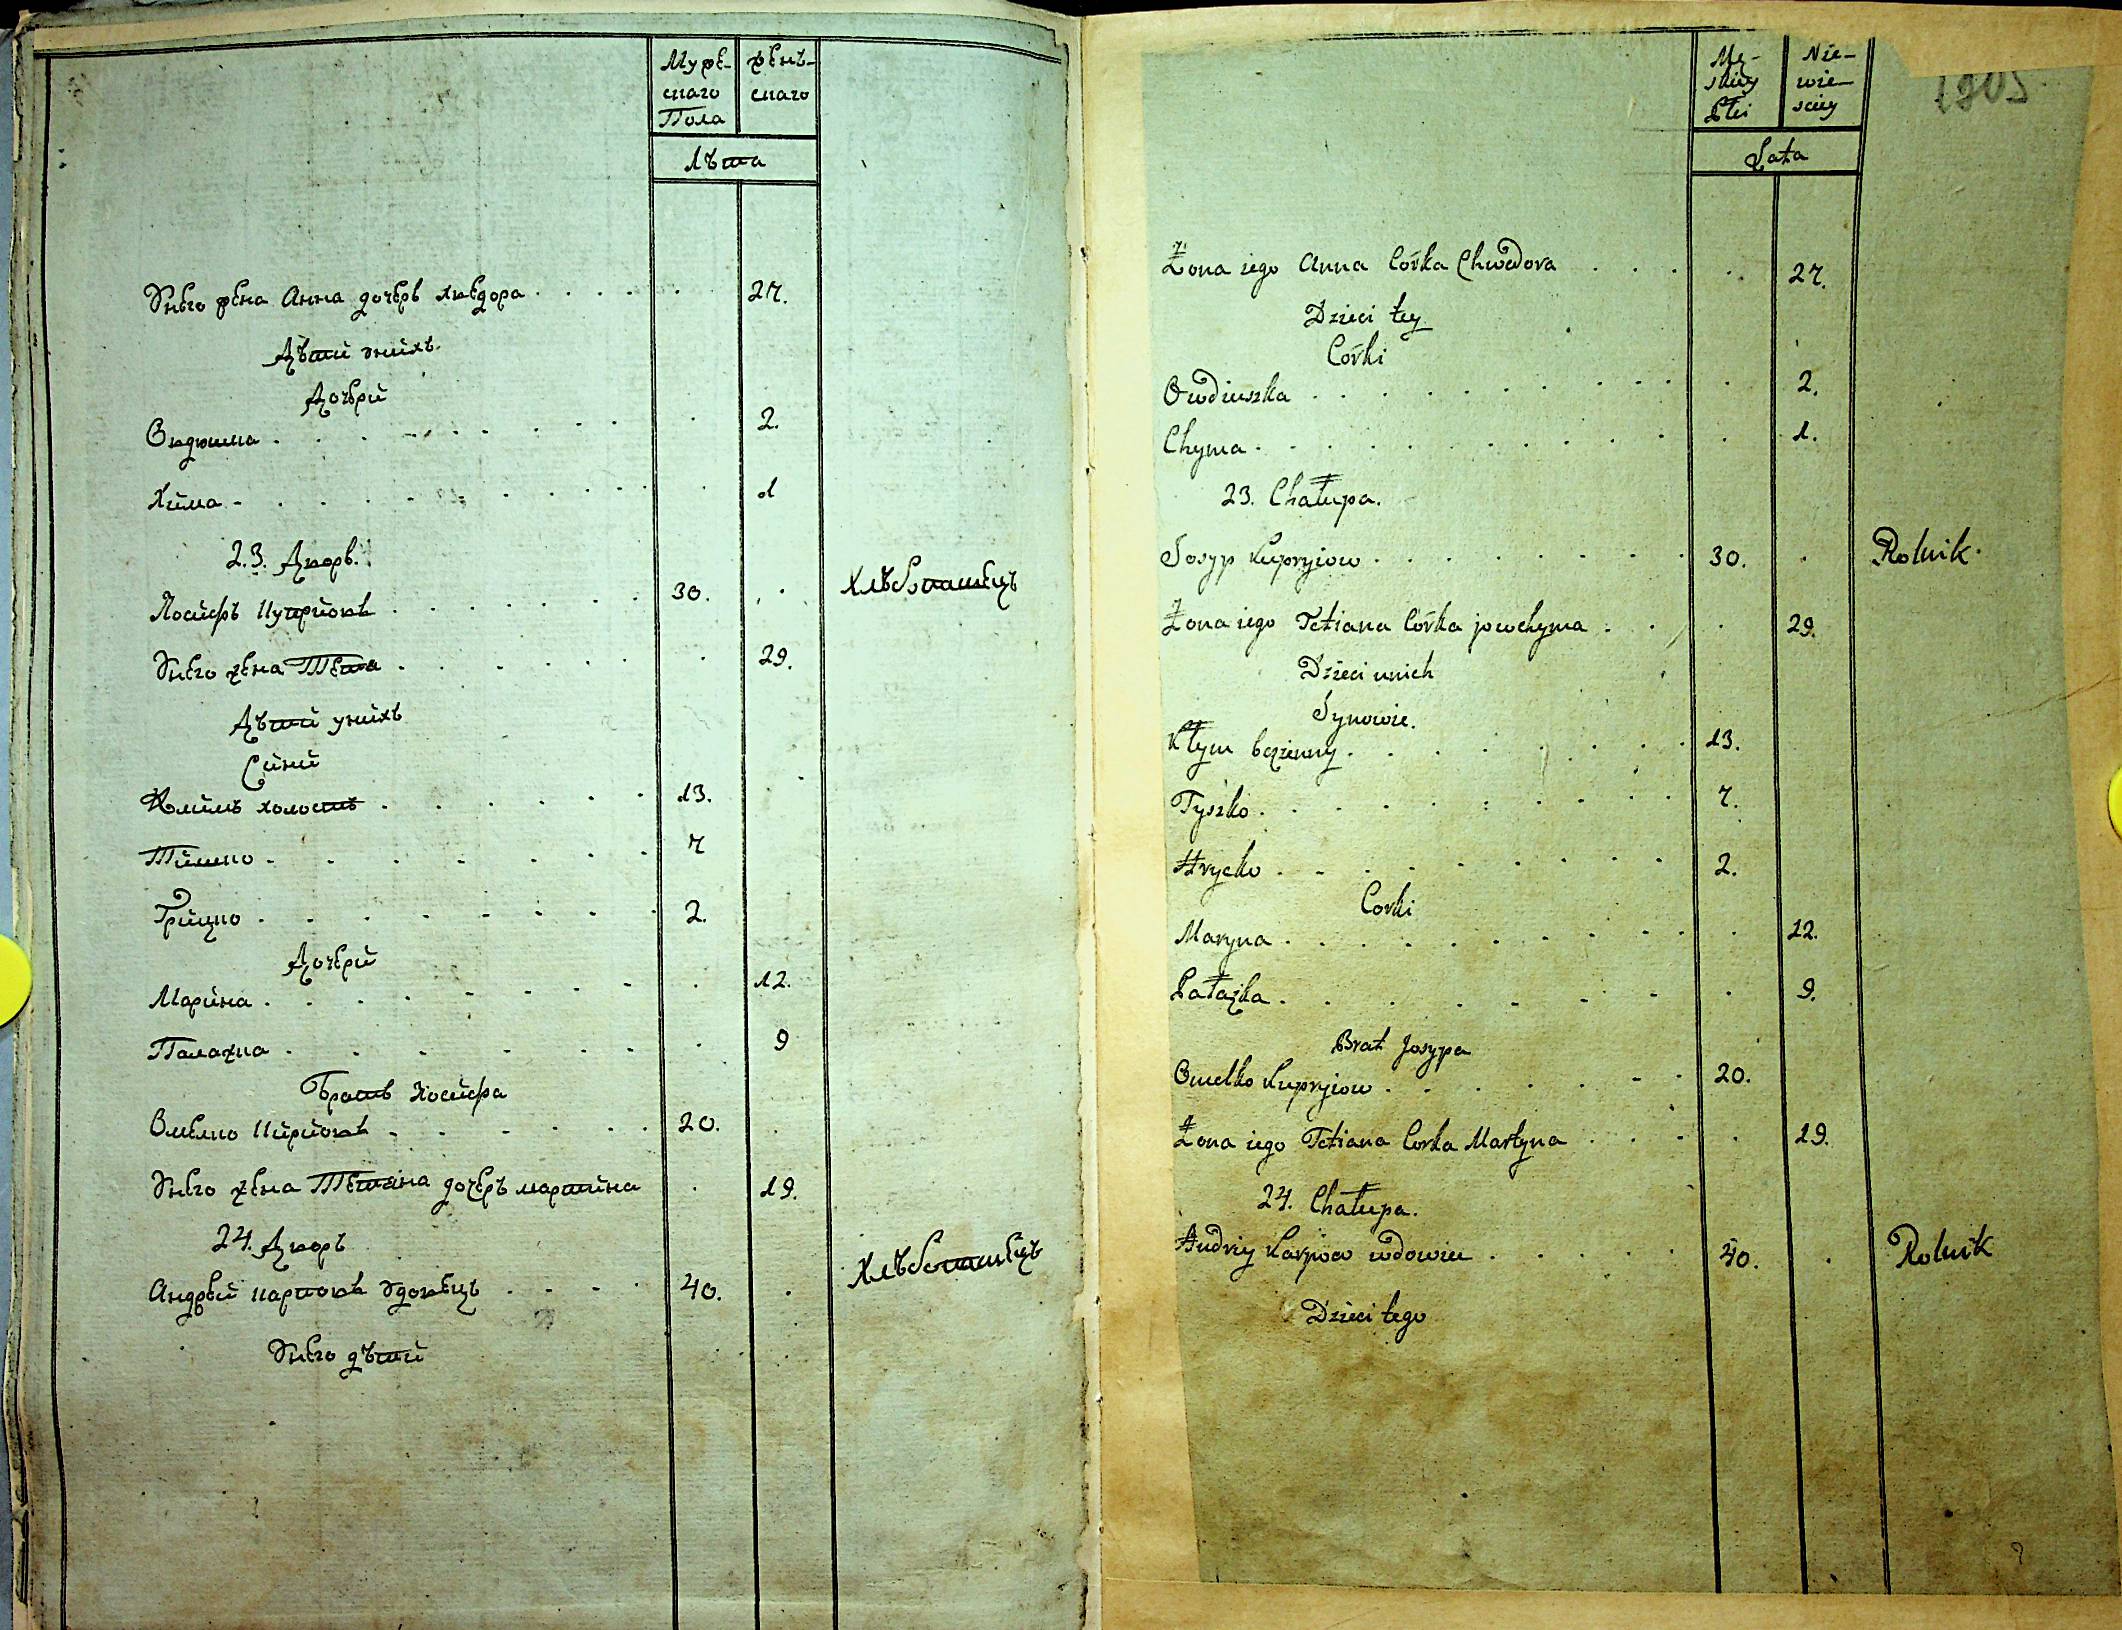 Муже-
скаго
Пола
женъ-
скаго
Лѣта
Унего жена Анна дочерь хведора . . . . . 27.
Дѣтй унйхъ.
Дочерй
Овдюшка . . . . . . . . 2.
Хйма . . . . . . . . 1
23. Дворъ.
Йосйфъ Купрйовъ . . . . . . 30. Хлѣбопашецъ
Унего жена Тетя . . . . . . 29.
Дѣтй унйхъ
Сйнй
Клймъ холостъ . . . . . . 13.
Тйшко . . . . . . . 7
Грйцко . . . . . . . 2.
Дочерй
Марйна . . . . . . . 12.
Палажка . . . . . . . 9
Братъ Йосйфа
Омелко . . . . . . 20.
Унего жена Тетяна дочеръ мартйна . 19.
24. Дворъ
Андрей карповъ удовецъ . . . . 40. Хлѣбопашецъ
Унего дѣтй
Mę-
skiey
Płci
Nie-
wie-
sciey
Lata
1805
Żona iego Anna Córka Chwedora . . . . 27.
Dzieci tey
Córki
Owdiuszka . . . . . . . . . 2.
Chyma . . . . . . . . . 1.
23. Chałupa.
Josyp Kupryiow . . . . . . . 30. Rolnik.
Żona iego Tetiana Córka jowchyma . . . 29.
Dzieci unich
Synowie.
Kłym bezżenny . . . . . . . 13.
Tyszko . . . . . . . . 7.
Hrycko . . . . . . . . 2.
Corki
Maryna . . . . . . . . 12.
Pałażka . . . . . . . . 9.
Brat Josypa
Omelko Kupryiow . . . . . . 20.
Żona iego Tetiana Corka Martyna . . . . 19.
24. Chałupa.
Andriy Karpow wdowiec . . . . . 40. Rolnik
Dzieci tego